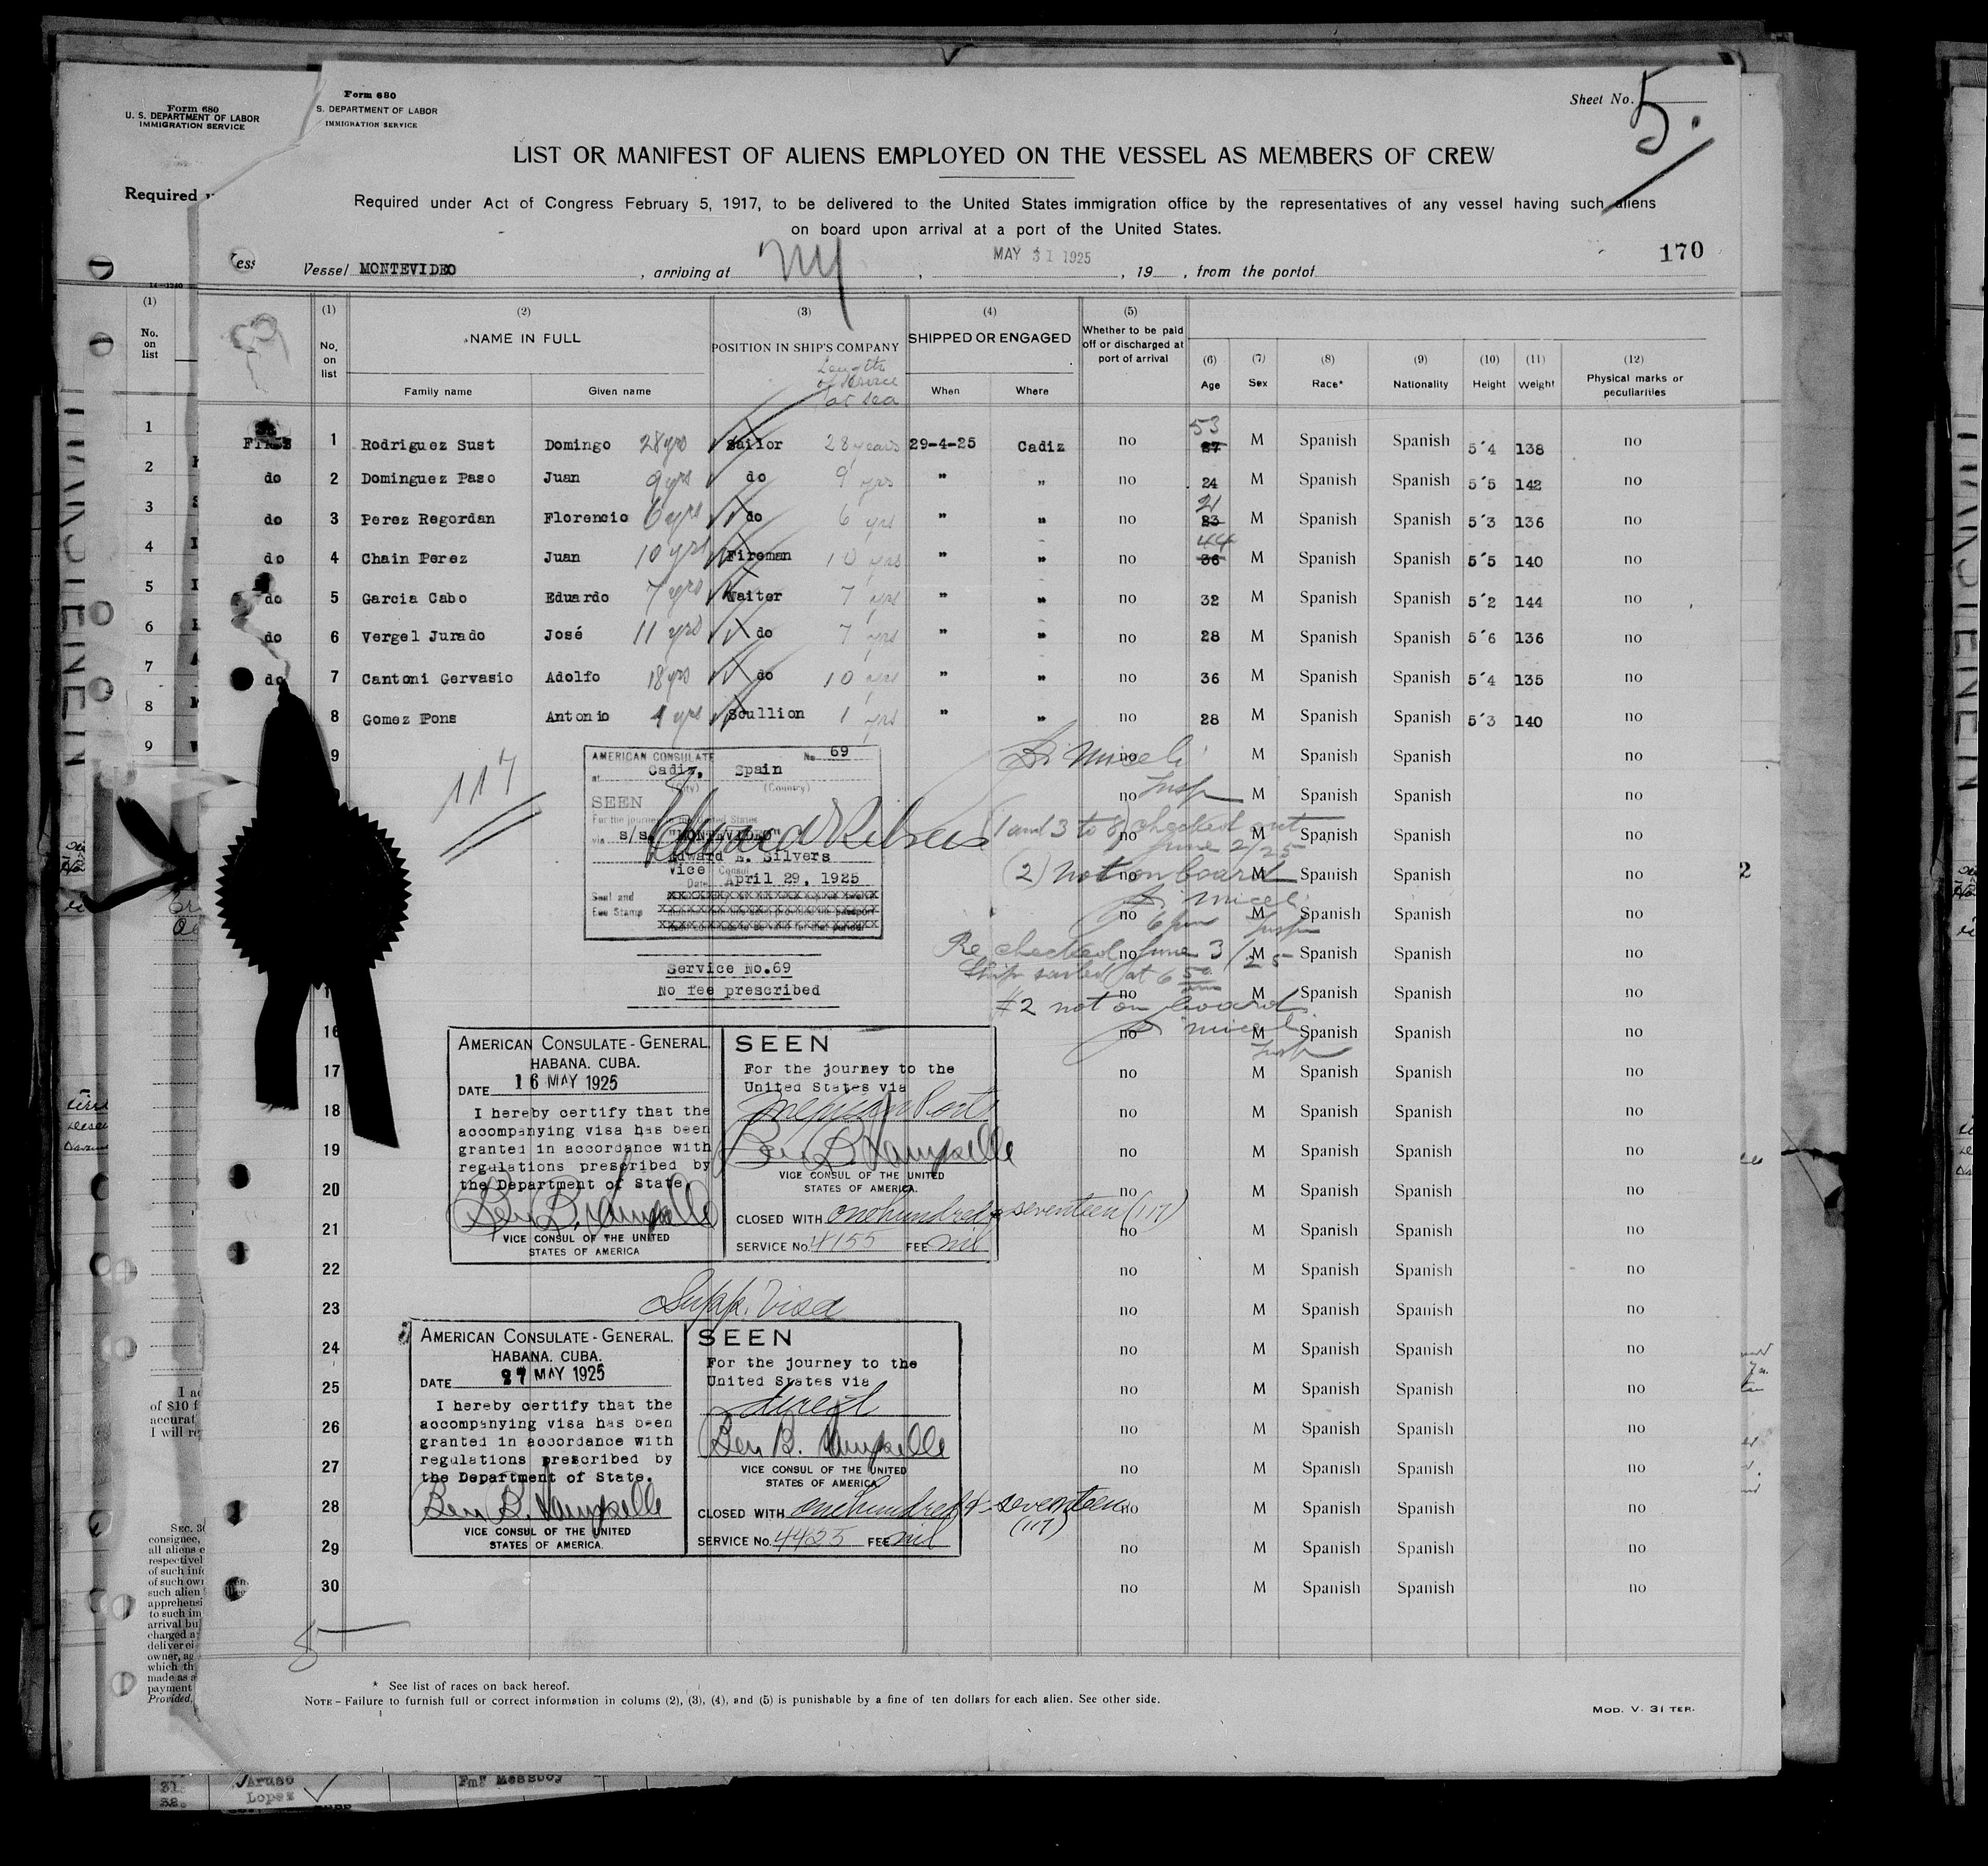 Form 680
U. S. DEPARTMENT OF LABOR
IMMIGRATION SERVICE
Form 680
S. DEPARTMENT OF LABOR
IMMIGRATION SERVICE
Sheet No. 5.
LIST OR MANIFEST OF ALIENS EMPLOYED ON THE VESSEL AS MEMBERS OF CREW
Required
Required under Act of Congress February 5, 1917, to be delivered to the United States immigration office by the representatives of any vessel having such aliens
on board upon arrival at a port of the United States.
170
Vessel MONTEVIDEO, arriving at NY, MAY 31 1925, 19 , from the portof
(1) No. on list
(2) NAME IN FULL
Family name Given name
(3) POSITION IN SHIP'S COMPANY
Length of Service at sea
(4) SHIPPED OR ENGAGED
When Where
(5) Whether to be paid off or discharged at port of arrival
(6) Age
(7) Sex
(8) Race*
(9) Nationality
(10) Height
(11) Weight
(12) Physical marks or peculiarities
1 Rodriguez Sust Domingo 28 yrs Sailor 28 years 29-4-25 Cadiz no 53 M Spanish Spanish 5´4 138 no
do 2 Dominguez Paso Juan 9 yrs do 9 yrs " " no 24 M Spanish Spanish 5´5 142 no
do 3 Perez Regordan Florencio 6 yrs do 6 yrs " " no 21 23 M Spanish Spanish 5´3 136 no
do 4 Chain Perez Juan 10 yrs Fireman 10 yrs " " no 44 36 M Spanish Spanish 5´5 140 no
do 5 Garcia Cabo Eduardo 7 yrs Waiter 7 yrs " " no 32 M Spanish Spanish 5´2 144 no
do 6 Vergel Jurado José 11 yrs do 7 yrs " " no 28 M Spanish Spanish 5´6 136 no
do 7 Cantoni Gervasio Adolfo 18 yrs do 10 yrs " " no 36 M Spanish Spanish 5´4 135 no
8 Gomez Pons Antonio 1 yrs Scullion 1 yrs " " no 28 M Spanish Spanish 5´3 140 no
9 no M Spanish Spanish no
no M Spanish Spanish no
no M Spanish Spanish no
no M Spanish Spanish no
no M Spanish Spanish no
no M Spanish Spanish no
no M Spanish Spanish no
16 no M Spanish Spanish no
17 no M Spanish Spanish no
18 no M Spanish Spanish no
19 no M Spanish Spanish no
20 no M Spanish Spanish no
21 no M Spanish Spanish no
22 no M Spanish Spanish no
23 no M Spanish Spanish no
24 no M Spanish Spanish no
25 no M Spanish Spanish no
26 no M Spanish Spanish no
27 no M Spanish Spanish no
28 no M Spanish Spanish no
29 no M Spanish Spanish no
30 no M Spanish Spanish no
117
AMERICAN CONSULATE No 69
at Cadiz, Spain
(City) (Country)
SEEN
For the journey to the United States
via s/s. "MONTEVIDEO"
Edward E. Silvers
Vice Consul
Date April 29, 1925
Seal and
Fee Stamp
Service No.69
No fee prescribed
Miceli
Insp
(1 and 3 to 8) checked out
June 2/25
(2) not on board
Miceli
6 pm Insp
Re checked June 3/25
Ship sailed at 6 50
#2 not on board
Miceli
Insp
AMERICAN CONSULATE-GENERAL.
HABANA. CUBA.
DATE 16 MAY 1925
I hereby certify that the
accompanying visa has been
granted in accordance with
regulations prescribed by
the Department of State
VICE CONSUL OF THE UNITED
STATES OF AMERICA
SEEN
For the journey to the
United States via
Mexican Ports
VICE CONSUL OF THE UNITED
STATES OF AMERICA.
CLOSED WITH one hundred & seventeen (117)
SERVICE No. 4155 FEE nil
Supp. Visa
AMERICAN CONSULATE-GENERAL.
HABANA. CUBA.
DATE 27 MAY 1925
I hereby certify that the
accompanying visa has been
granted in accordance with
regulations prescribed by
the Department of State.
VICE CONSUL OF THE UNITED
STATES OF AMERICA.
SEEN
For the journey to the
United States via
direct
VICE CONSUL OF THE UNITED
STATES OF AMERICA
CLOSED WITH one hundred & seventeen
(117)
SERVICE No. 4425 FEE nil
5
* See list of races on back hereof.
NOTE – Failure to furnish full or correct information in colums (2), (3), (4), and (5) is punishable by a fine of ten dollars for each alien. See other side.
MOD. V. 31 TER.
Lopez